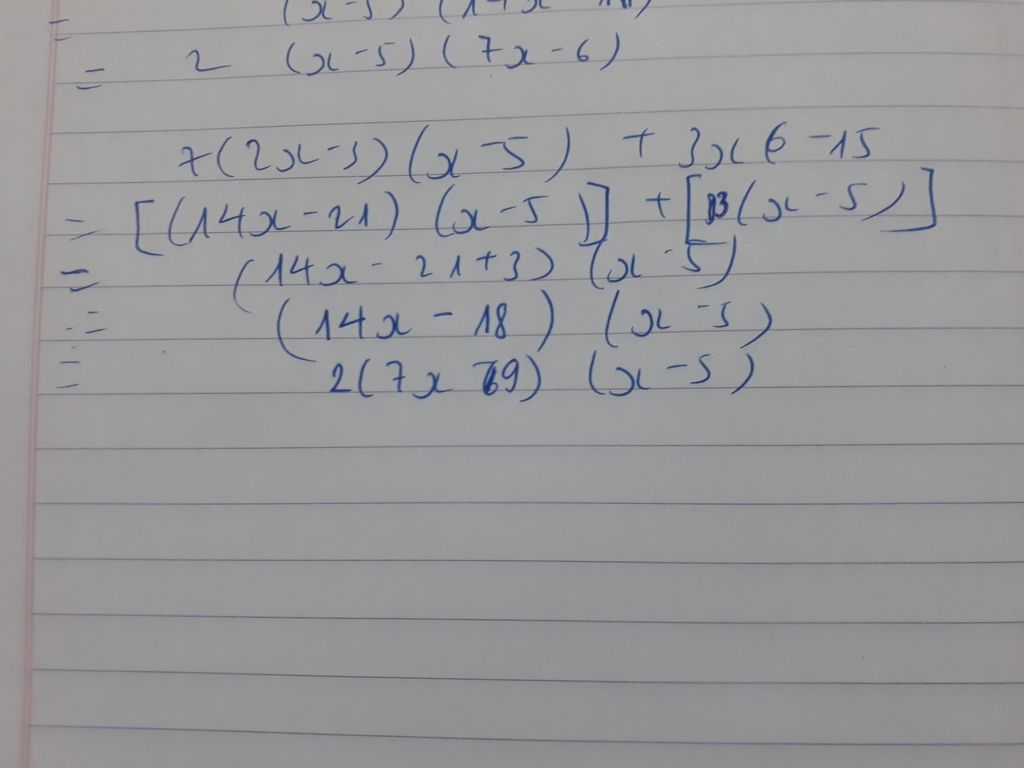 = (x-5) (14x
= 2 (x-5) (7x-6)
7(2x-3)(x-5) + 3x-15
= [(14x-21) (x-5)] + [3(x-5)]
= (14x-21+3) (x-5)
= (14x-18) (x-5)
= 2(7x-9) (x-5)